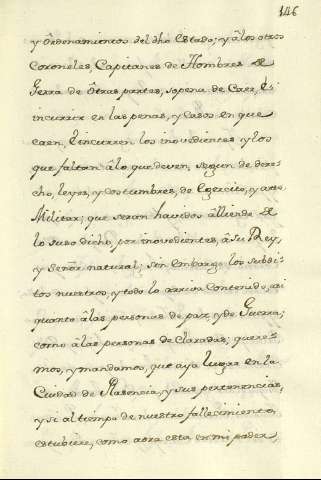 146
y Ordenamientos del dho Estado; y à los otros
Coroneles, Capitanes de Hombres de
Gerra de ôtras partes, sopena de Caer, è
incurrir en las penas, y casos en que
caen, è incurren los inovedientes y los
que faltan à lo que deven, segun de dere-
cho, leyes, y costumbres, de Egercito, y arte
Militar; que seran havidos àlliende de
lo suso dicho, por inovedientes, à su Rey,
y Señor natural; sin embargo los subdi-
tos nuestros, y todo lo arriva contenido, asi
quanto à las personas de paz, y de Guerra;
como à las personas de Claradas; quere-
mos, y mandamos, que aya lugar en la
Ciudad de Plasencia, y sus pertenencias,
y si al tiempo de nuestro fallecimiento,
estubiere, como aora esta en mi poder,